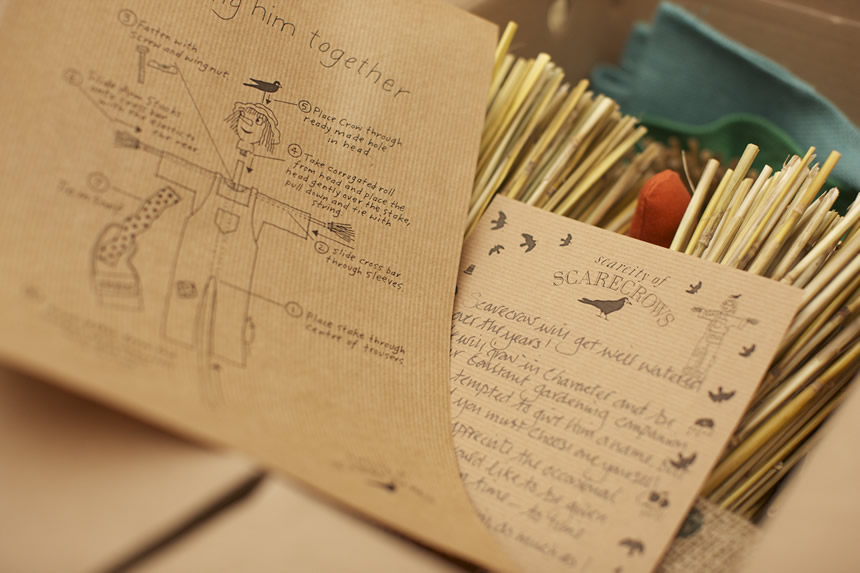 ng him together
③ Fasten with
screw and wing nut
⑤ Place Crow through
ready made hole
in head
④ Take corrugated roll
from head and place the
head gently over the stake,
pull down and tie with
string.
② Slide cross bar
through sleeves.
① Place stake through
centre of trousers
scarcity of
SCARECROWS
Scarecrow will get well watered
over the years!
will grow in character and be
constant gardening companion
tempted to give him a name,
you must choose one yourself!
appreciate the occasional
would like to be given
time to time